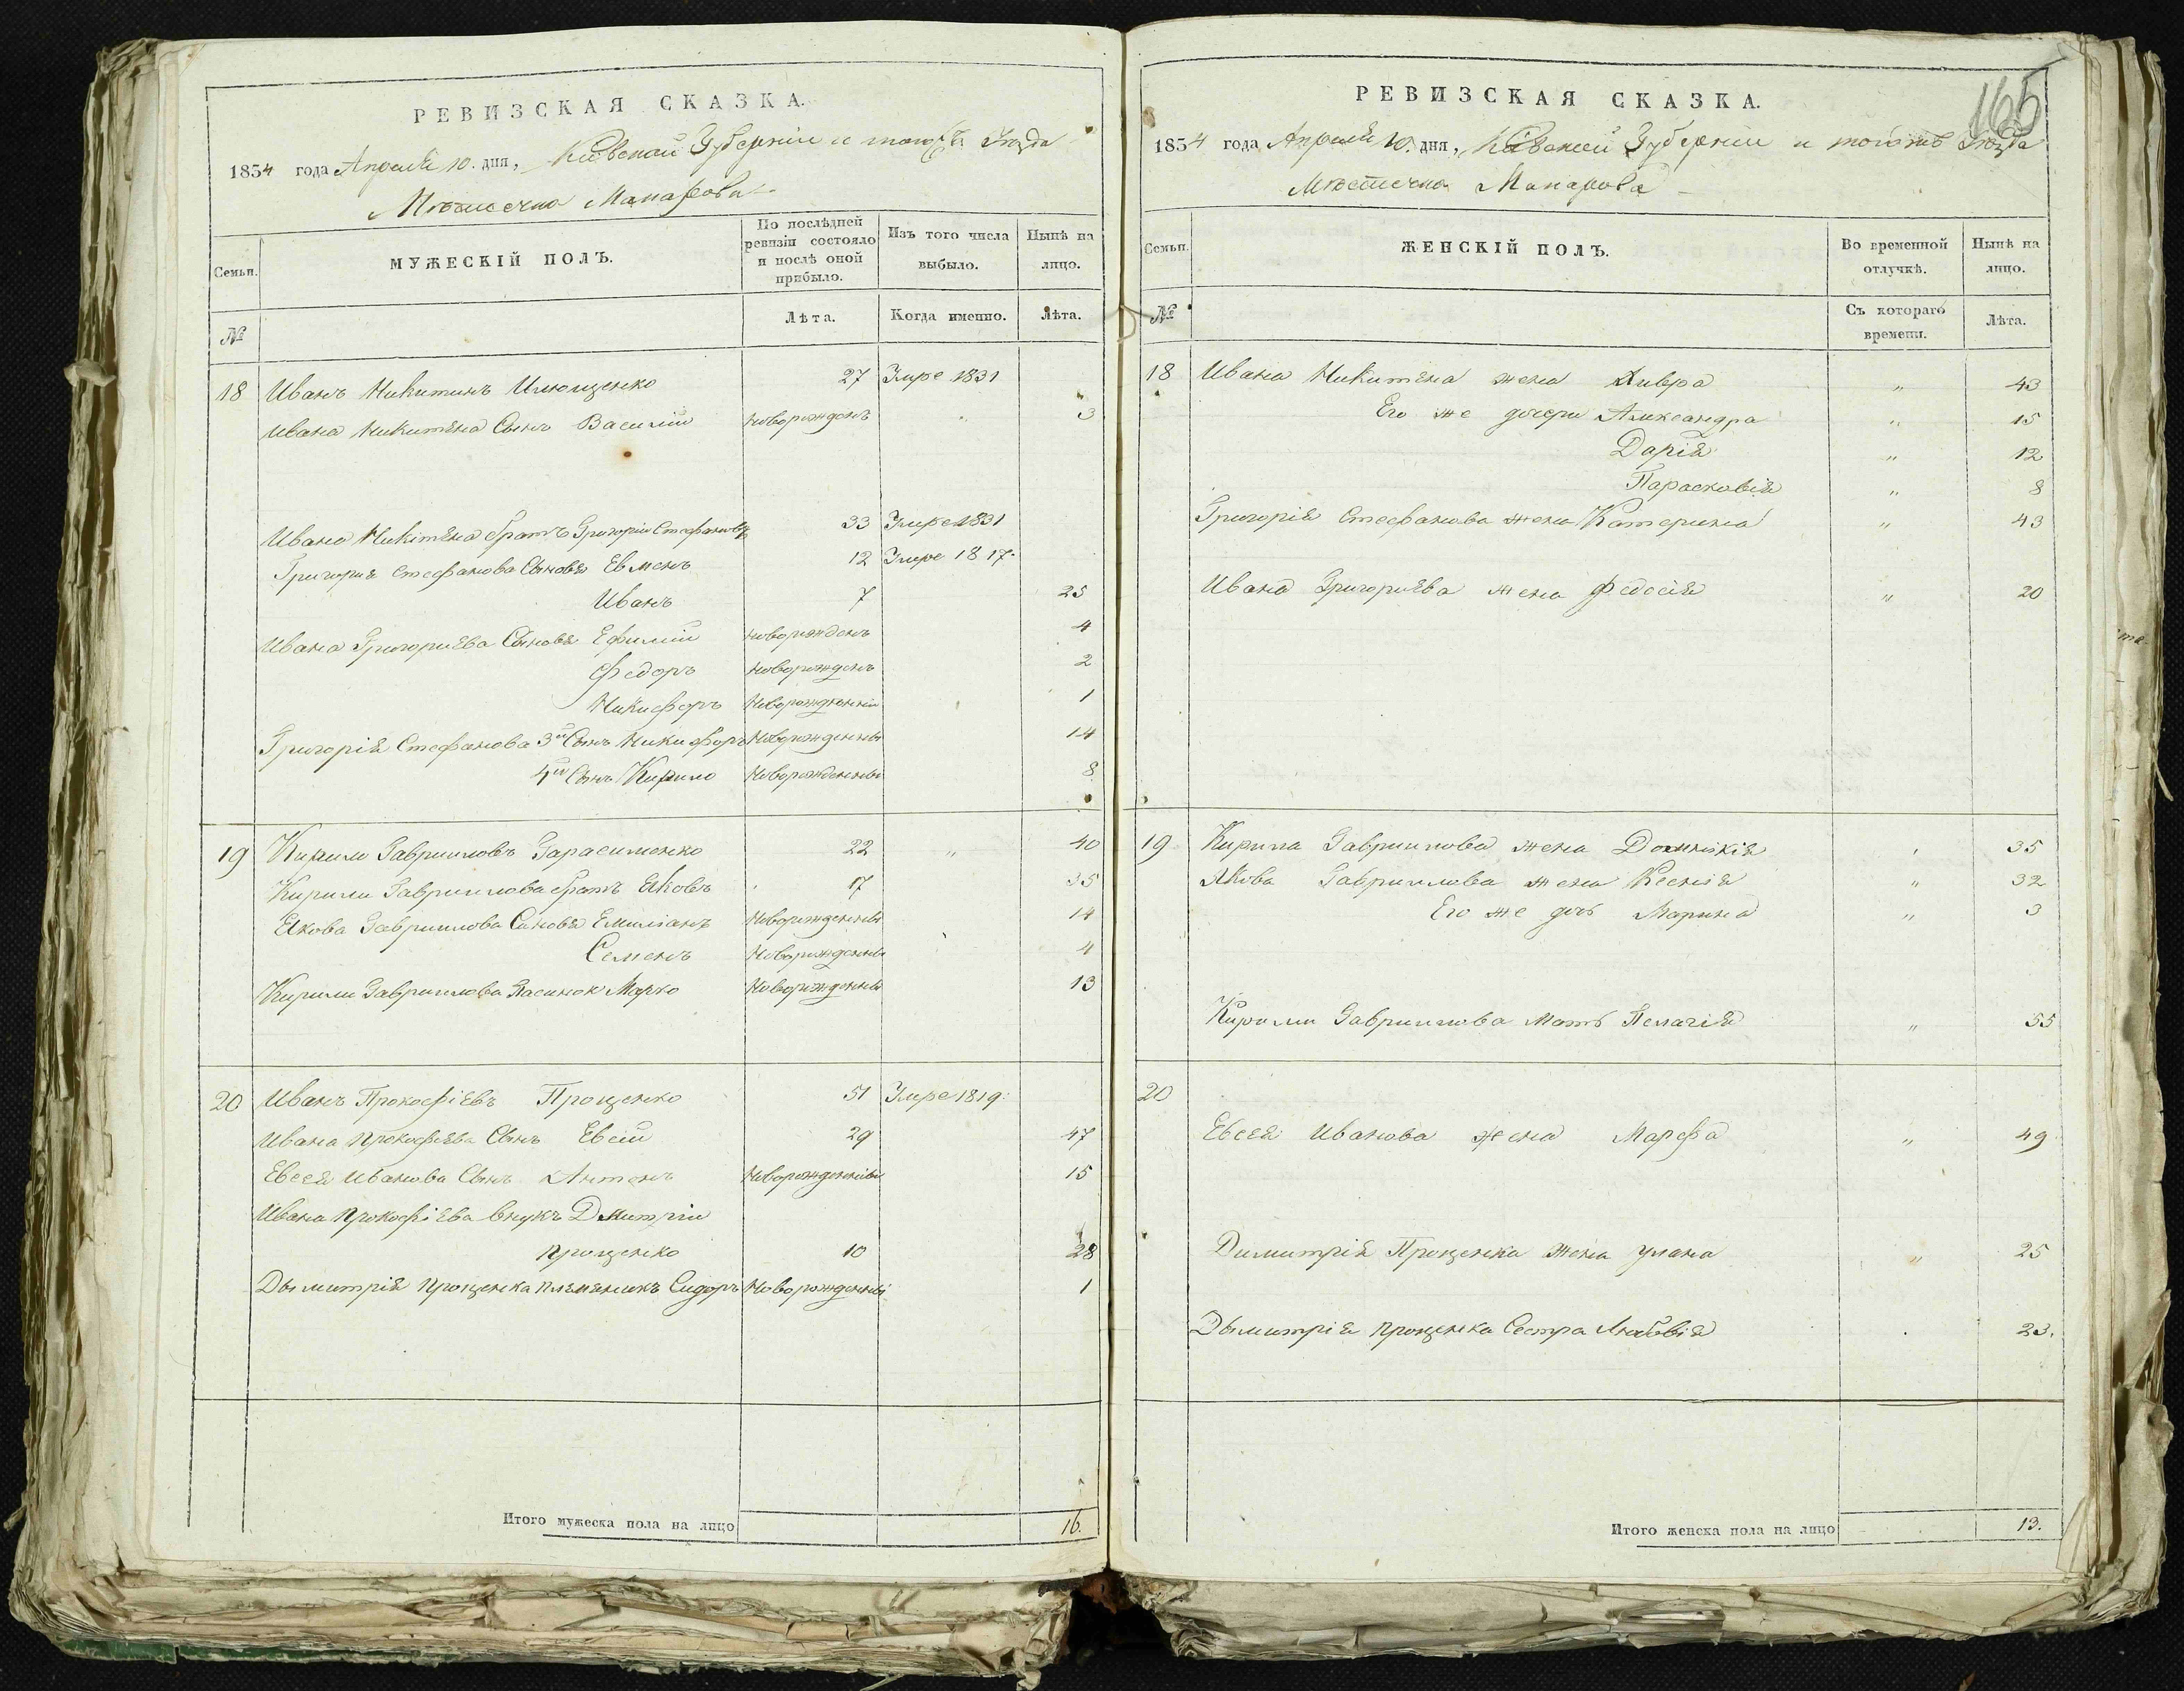 РЕВИЗСКАЯ СКАЗКА.
1834 года Апреля 10. дня, Киевской Губернии и того жъ Уезда
Мѣстечка Макарова
Семьи.
МУЖЕСКІЙ ПОЛЪ.
По послѣдней ревизіи состояло и послѣ оной прибыло.
Изъ того числа выбыло.
Нынѣ на лицо.
№
Лѣта.
Когда именно.
Лѣта.
18 Иванъ Никитинъ 27 Умре 1831
Ивана Никитина Сынъ Василій новорожденъ 3
Ивана Никитина братъ Григорій Стефановъ 33 Умре 1831
Григорія Стефанова Сыновя Евменъ 12 Умре 1817.
Иванъ 7 25
Ивана Григориева Сыновя Ефимій новорожденъ 4
Федоръ новорожденъ 2
Никифоръ Новорожденній 1
Григорія Стефанова 3й Сынъ Никифоръ Новорожденный 14
4й Сынъ Кирило Новорожденный 8
19 Кирило Гаврииловъ Гарасименко 22 " 40
Кирили Гавриилова братъ Яковъ 17 35
Якова Гавриилова Сыновя Емиліанъ Новорожденный 14
Семенъ Новорожденны 4
Кирили Гавриилова Пасинок Марко Новорожденны 13
20 Иванъ Прокофіевъ Проценко 51 Умре 1819.
Ивана Прокофіева Сынъ Евсій 29 47
Евсея Иванова Сынъ Антонъ Новорожденный 15
Ивана Прокофіева внукъ Дмитрій
Проценко 10 28
Дымитрія Проценка племяникъ Сидоръ Новорожденны 1
Итого мужеска пола на лицо 16.
165
РЕВИЗСКАЯ СКАЗКА.
1834 года Апреля 10. дня, Кіевской Губерніи и того жъ Уезда
Мѣстечка Макарова
Семьи.
ЖЕНСКІЙ ПОЛЪ.
Во временной отлучкѣ.
Нынѣ на лицо.
№
Съ котораго времени.
Лѣта.
18 Ивана Никитина жена " 43
Его же дочери Александра " 15
Дарія " 12
Парасковія " 8
Григорія Стефанова жена Катерина " 43
Ивана Григориева жена Федосія " 20
19 Кирила Гавриилова жена Домникія 35
Якова Гавриилова жена Ксенія " 32
Его же дочь Марина " 3
Кирили Гавриилова Мать Пелагія " 55
20
Евсея Иванова жена Марфа " 49
Димитрія Проценка жена Уляна " 25
Дымитрія Проценка Сестра Любовія 23.
Итого женска пола на лицо 13.